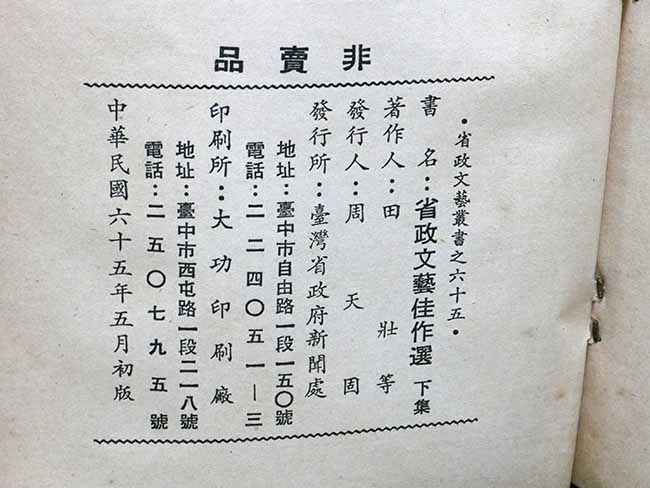 非賣品
•省政文藝叢書之六十五•
書　名：省政文藝佳作選 下集
著作人：田　壯　等
發行人：周　天　固
發行所：臺灣省政府新聞處
地址：臺中市自由路一段一五〇號
電話：二二四〇五一—三
印刷所：大功印刷廠
地址：臺中市西屯路一段二一八號
電話：二五〇七九五號
中華民國六十五年五月初版